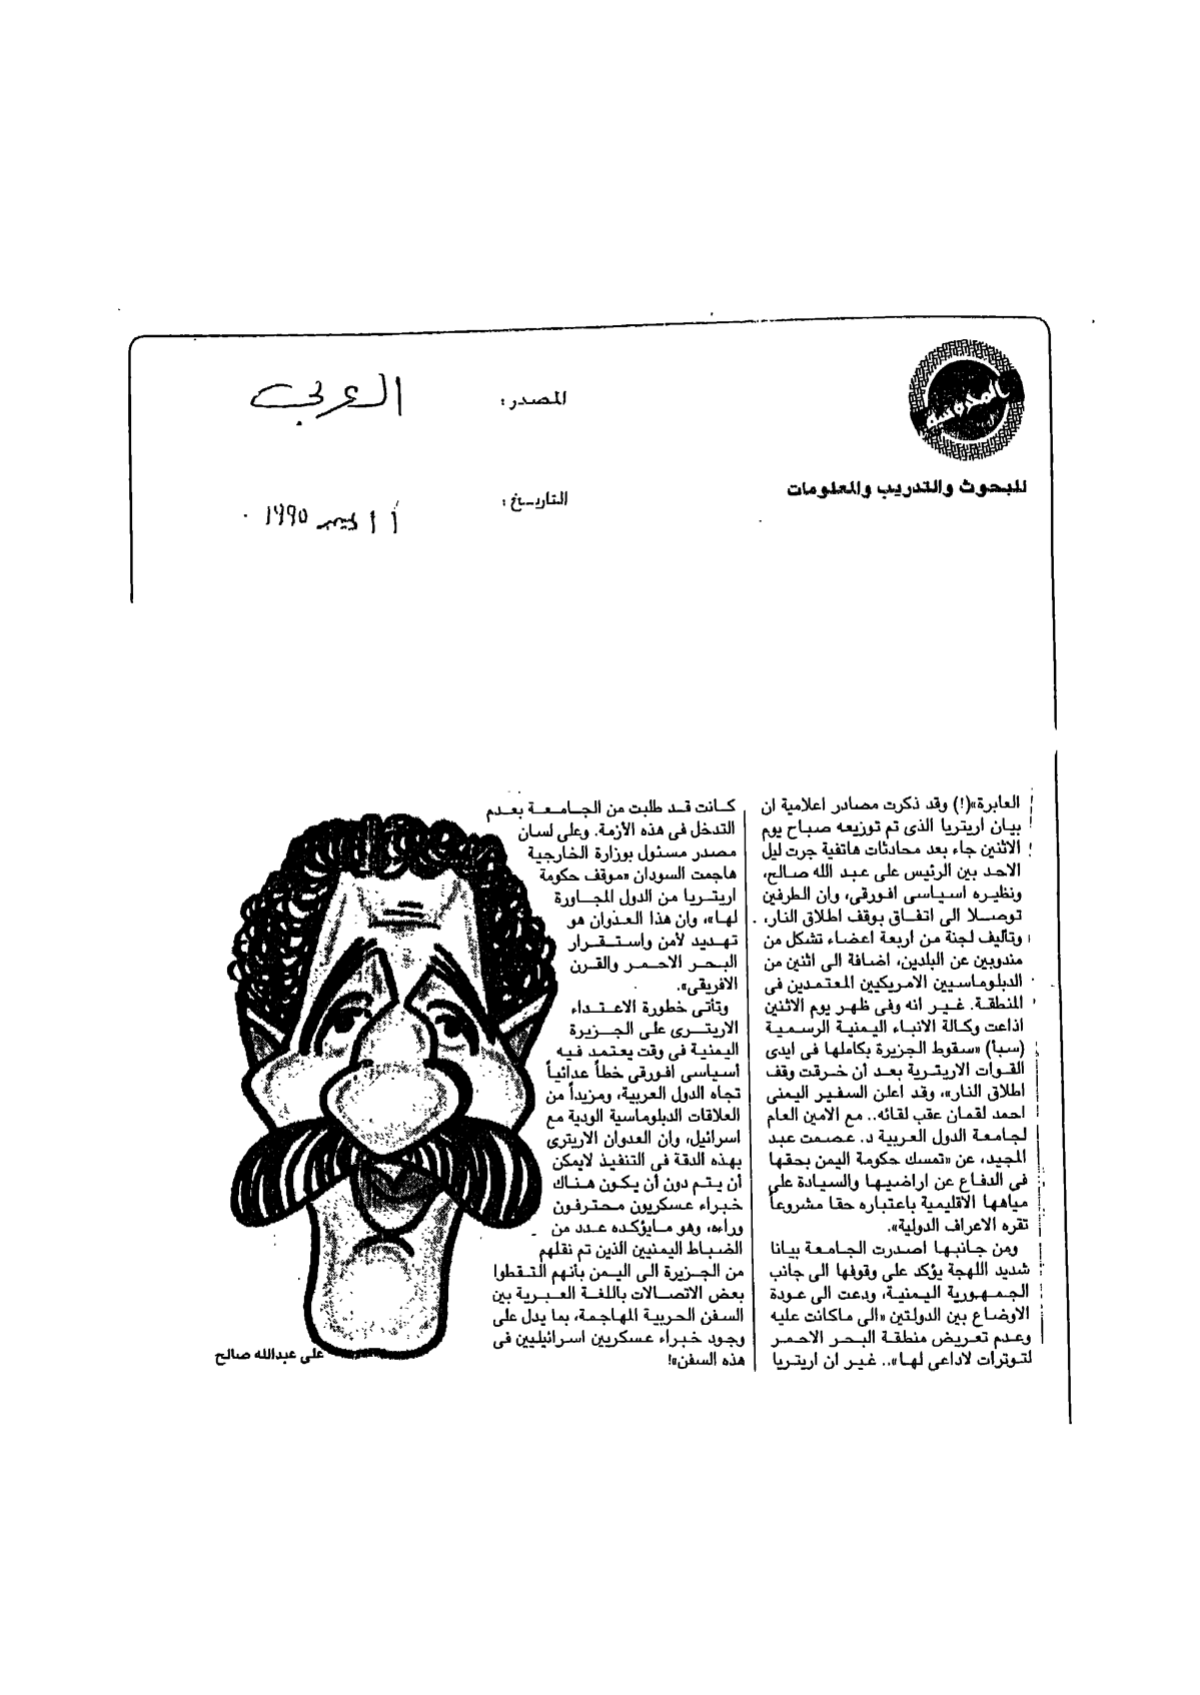 المحروسة
للبحوث والتدريب والمعلومات
المصدر : العربى
التاريخ : ١١ ديسمبر ١٩٩٥
العابرة»(!) وقد ذكرت مصادر اعلامية ان
بيان اريتريا الذى تم توزيعه صباح يوم
الاثنين جاء بعد محادثات هاتفية جرت ليل
الاحد بين الرئيس على عبد الله صالح،
ونظيره اسياسى افورقى، وان الطرفين
توصلا الى اتفاق بوقف اطلاق النار،
وتأليف لجنة من اربعة اعضاء تشكل من
مندوبين عن البلدين، اضافة الى اثنين من
الدبلوماسيين الامريكيين المعتمدين فى
المنطقة. غير انه وفى ظهر يوم الاثنين
اذاعت وكالة الانباء اليمنية الرسمية
(سبأ) «سقوط الجزيرة بكاملها فى ايدى
القوات الاريترية بعد أن خرقت وقف
اطلاق النار»، وقد اعلن السفير اليمنى
احمد لقمان عقب لقائه.. مع الامين العام
لجامعة الدول العربية د. عصمت عبد
المجيد، عن «تمسك حكومة اليمن بحقها
فى الدفاع عن اراضيها والسيادة على
مياهها الاقليمية باعتباره حقا مشروعاً
تقره الاعراف الدولية».
ومن جانبها اصدرت الجامعة بيانا
شديد اللهجة يؤكد على وقوفها الى جانب
الجمهورية اليمنية، ودعت الى عودة
الاوضاع بين الدولتين «الى ماكانت عليه
وعدم تعريض منطقة البحر الاحمر
لتوترات لاداعى لها».. غير ان اريتريا
كانت قد طلبت من الجامعة بعدم
التدخل فى هذه الأزمة. وعلى لسان
مصدر مسئول بوزارة الخارجية
هاجمت السودان «موقف حكومة
اريتريا من الدول المجاورة
لها»، وان هذا العدوان هو
تهديد لأمن واستقرار
البحر الاحمر والقرن
الافريقى».
وتأتى خطورة الاعتداء
الاريترى على الجزيرة
اليمنية فى وقت يعتمد فيه
أسياسى افورقى خطاً عدائياً
تجاه الدول العربية، ومزيداً من
العلاقات الدبلوماسية الودية مع
اسرائيل، وان العدوان الاريترى
بهذه الدقة فى التنفيذ لايمكن
أن يتم دون أن يكون هناك
خبراء عسكريون محترفون
وراءه، وهو مايؤكده عدد من
الضباط اليمنيين الذين تم نقلهم
من الجزيرة الى اليمن بأنهم التقطوا
بعض الاتصالات باللغة العبرية بين
السفن الحربية المهاجمة، بما يدل على
وجود خبراء عسكريين اسرائيليين فى
هذه السفن»!
على عبدالله صالح